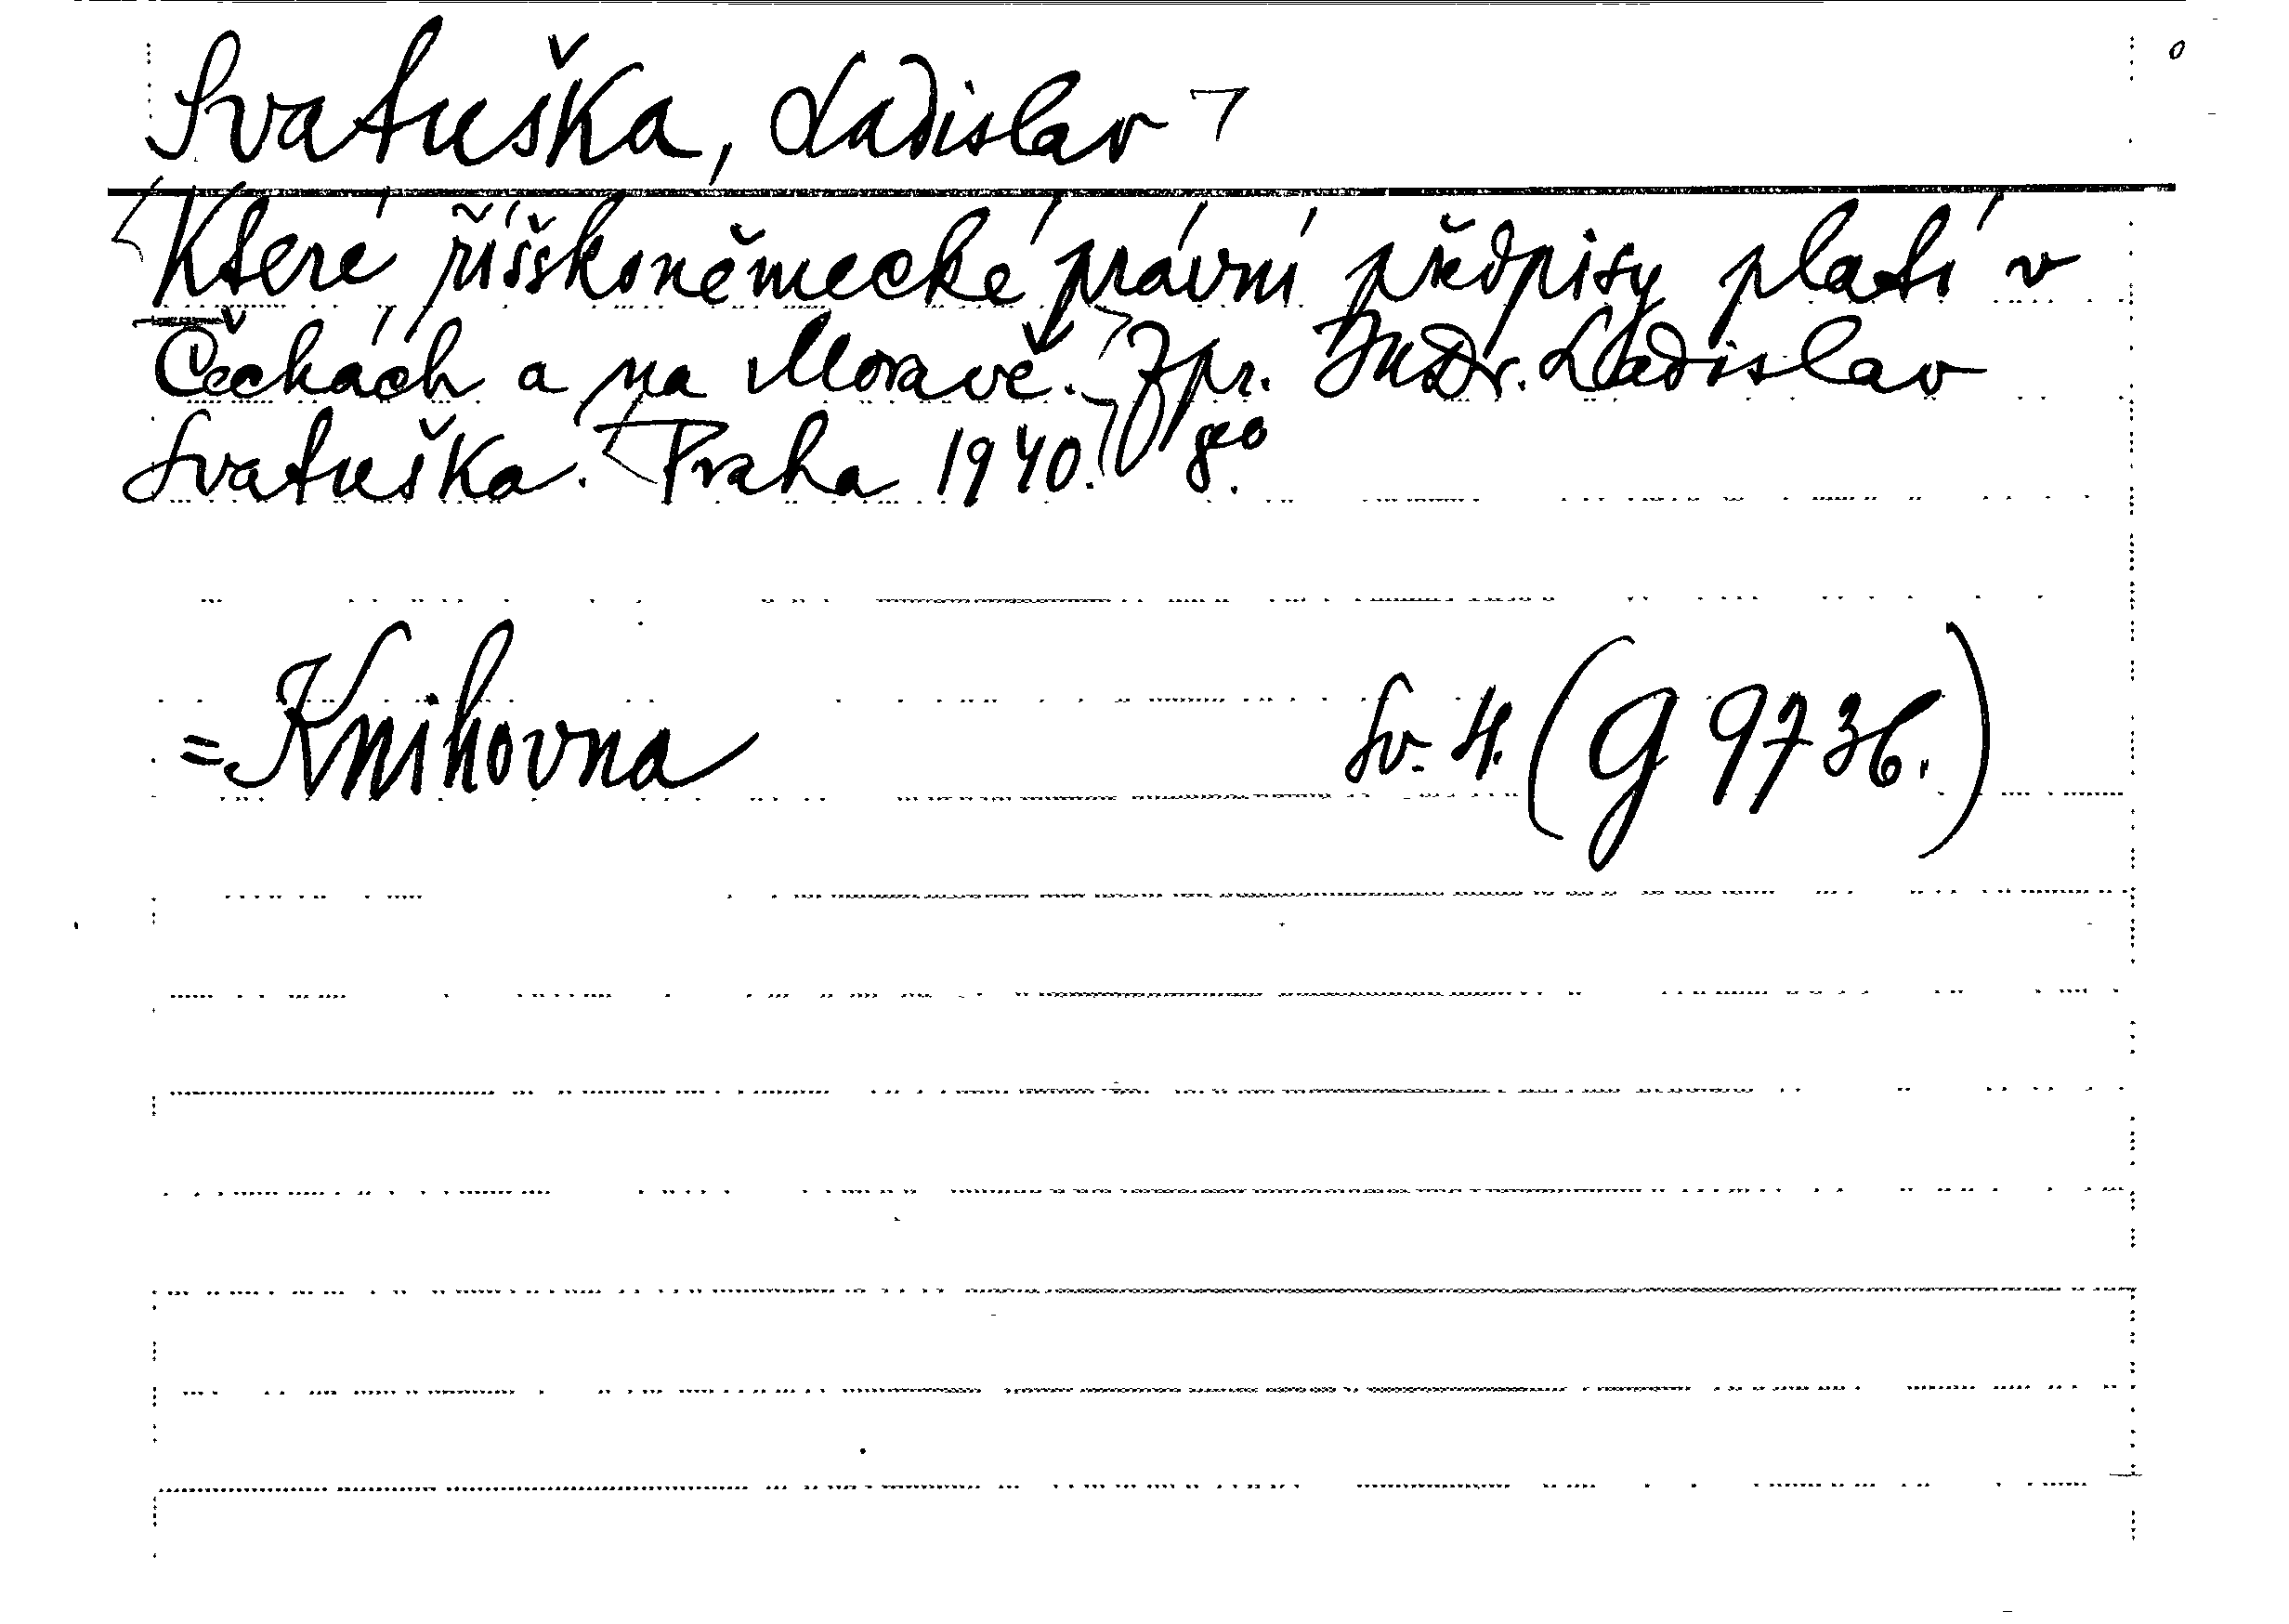 Svatuška, Ladislav
Které říšskoněmecké právní předpisy platí v
Čechách a na Moravě. Zpr. JUDr. Ladislav
Svatuška. Praha 1940. 8°.
= Knihovna Sv. 4. (G 9736.)